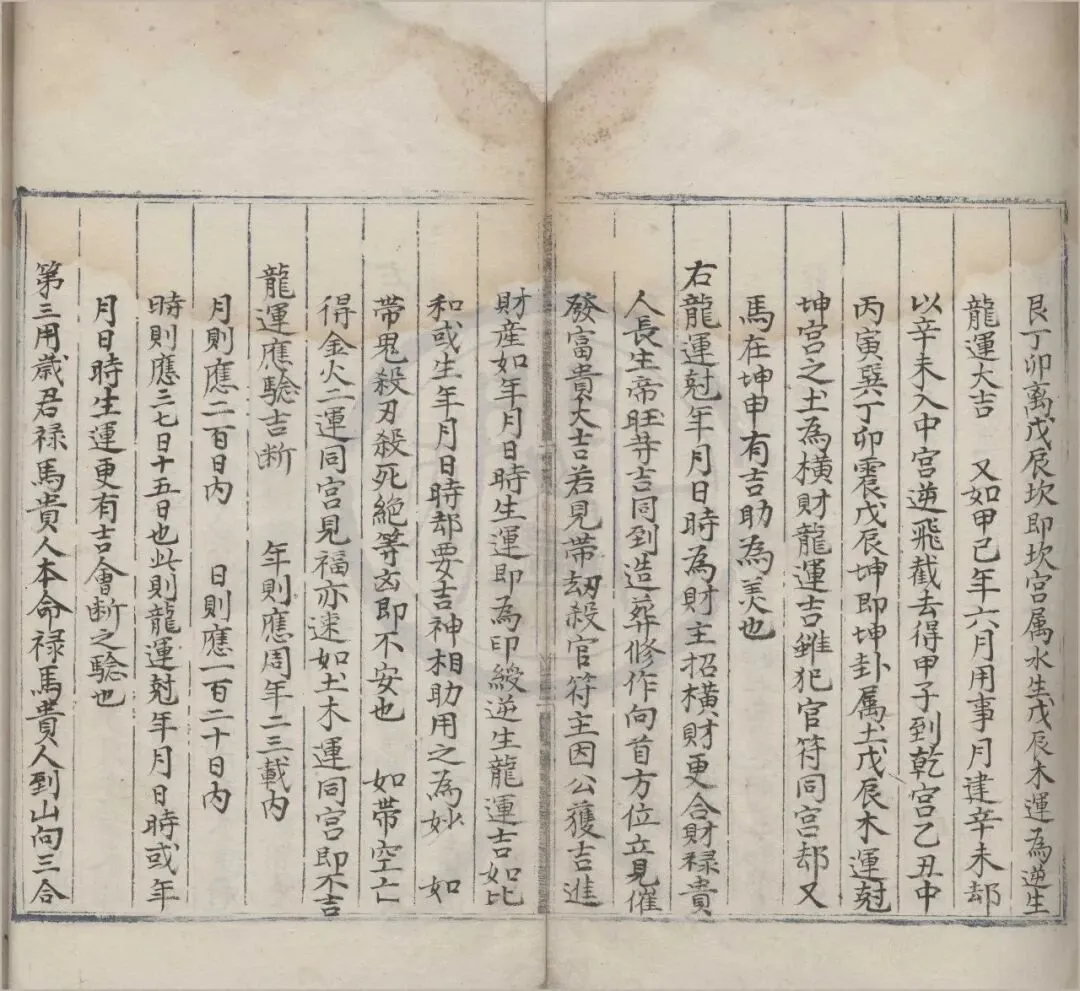 艮丁卯离戊辰坎即坎宫属水生戊辰木運為逆生
龍運大吉　又如甲己年六月用事月建辛未却
以辛未入中宫逆飛截去得甲子到乾宫乙丑中
丙寅巽丁卯震戊辰坤即坤卦属土戊辰木運尅
坤宫之土為橫財龍運吉雖犯官符同宫却又
馬在坤申有吉助為美也
右龍運尅年月日時為財主招橫財更合財禄貴
人長生帝旺等吉同到造葬修作向首方位立見催
發富貴大吉若見帶刼殺官符主因公獲吉進
財産如年月日時生運即為印綬逆生龍運吉如比
和或生年月日時却要吉神相助用之為妙　如
帶鬼殺刃殺死絶等凶即不安也　如帶空亡
得金火二運同宫見福亦速如土木運同宫即不吉
龍運應驗吉断　年則應周年二三載内
月則應二百日内　日則應一百二十日内
時則應三七日十五日也此則龍運尅年月日時或年
月日時生運更有吉會断之驗也
第三用歲君禄馬貴人本命禄馬貴人到山向三合